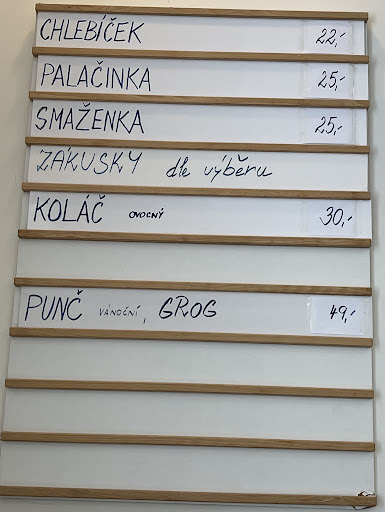 CHLEBÍČEK 22,-
PALAČINKA 25,-
SMAŽENKA 25,-
ZÁKUSKY dle výběru
KOLÁČ OVOCNÝ 30,-
PUNČ VÁNOČNÍ, GROG 49,-